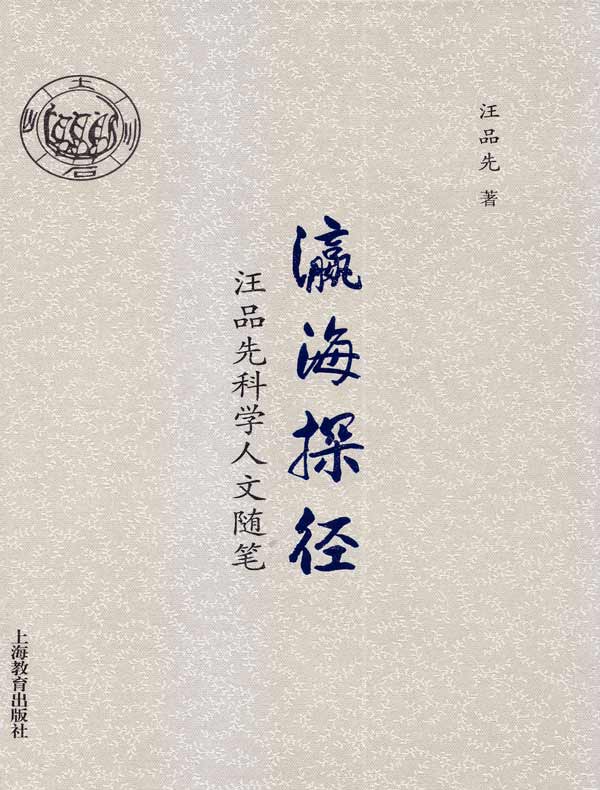 汪品先 著
瀛海探径
汪品先科学人文随笔
上海教育出版社